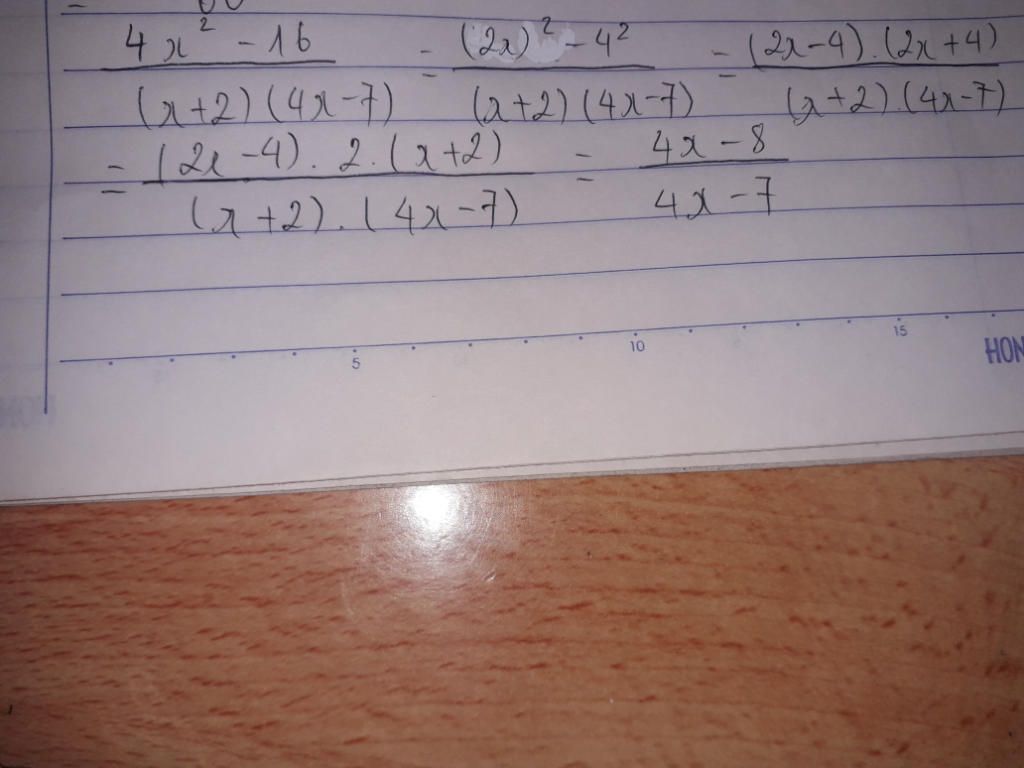 4x² - 16 / (x+2)(4x-7) = (2x)² - 4² / (x+2)(4x-7) = (2x-4).(2x+4) / (x+2).(4x-7)
= (2x-4).2.(x+2) / (x+2).(4x-7) = 4x-8 / 4x-7
5 10 15
HON